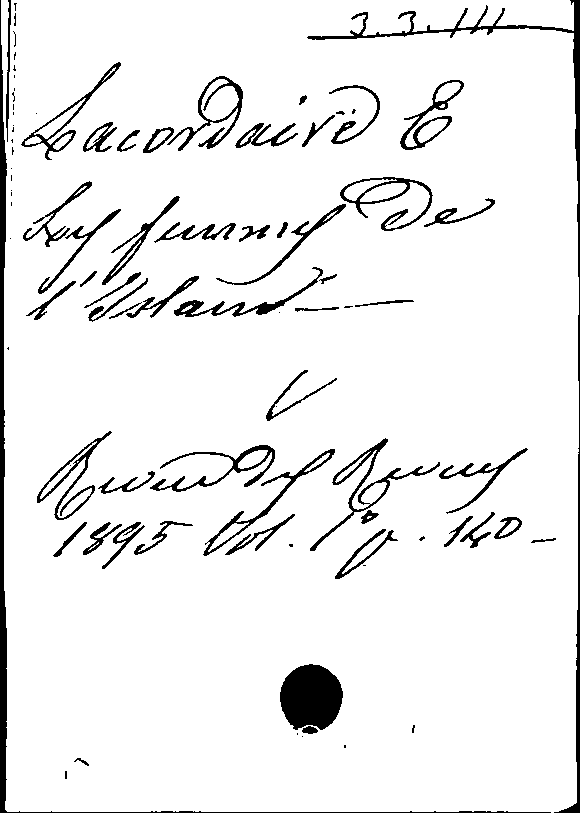 3.3.111
Lacordaire E
Les femmes de
l'Islam —
V
Revue des Revues
1895 Vol. 1º p. 140 —